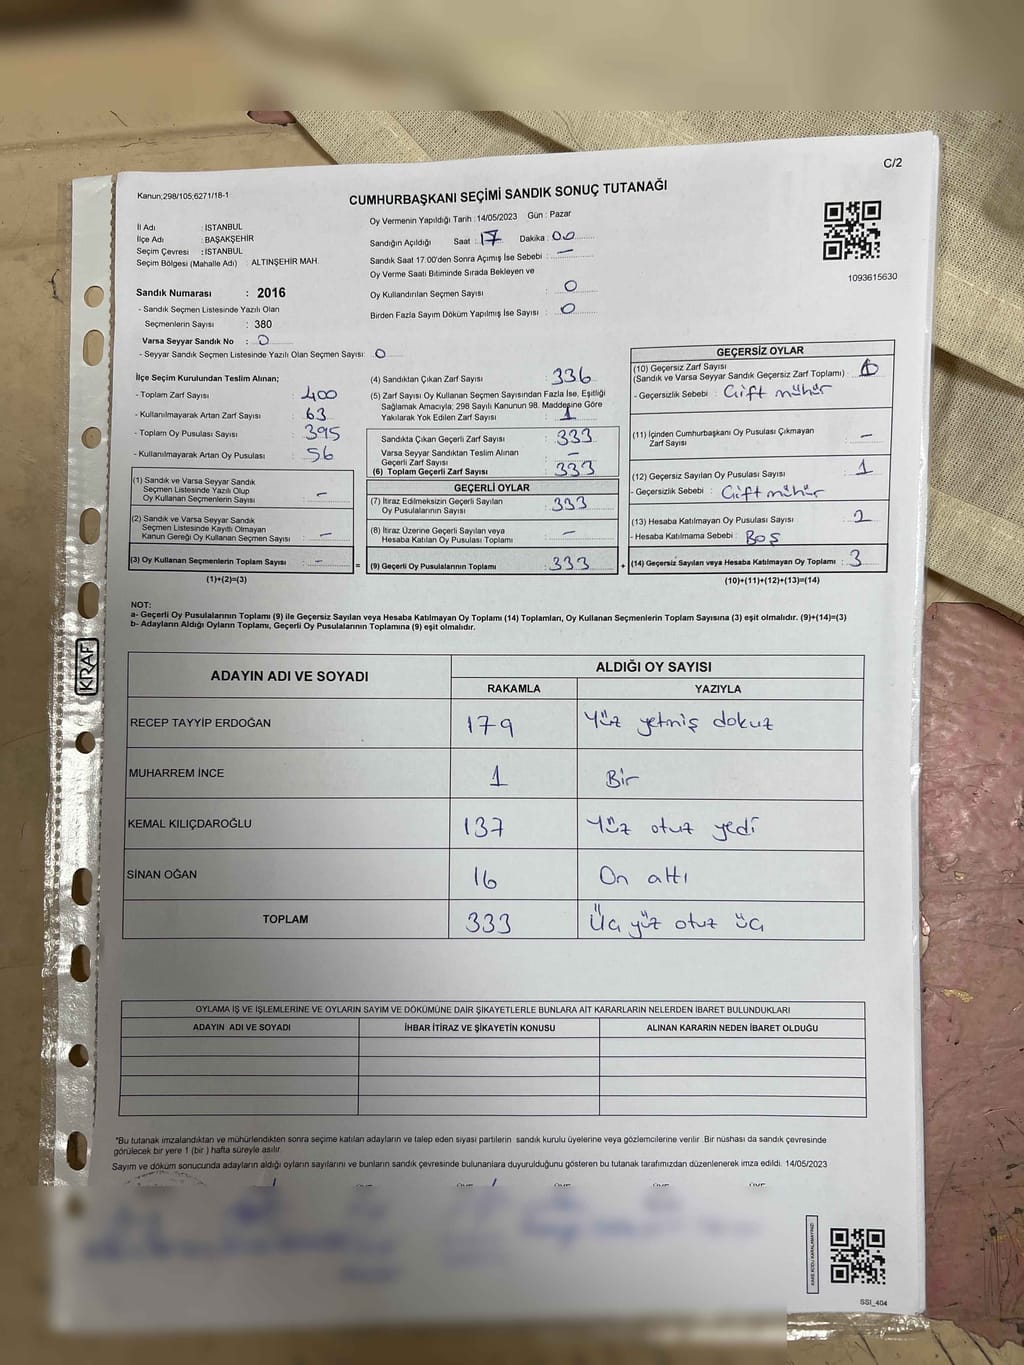 C/2
Kanun;298/105;6271/18-1
CUMHURBAŞKANI SEÇİMİ SANDIK SONUÇ TUTANAĞI
İl Adı : İSTANBUL
İlçe Adı : BAŞAKŞEHİR
Seçim Çevresi : İSTANBUL
Seçim Bölgesi (Mahalle Adı) : ALTINŞEHİR MAH.
Sandık Numarası : 2016
- Sandık Seçmen Listesinde Yazılı Olan
Seçmenlerin Sayısı : 380
Varsa Seyyar Sandık No : 0
- Seyyar Sandık Seçmen Listesinde Yazılı Olan Seçmen Sayısı: 0
Oy Vermenin Yapıldığı Tarih : 14/05/2023 Gün : Pazar
Sandığın Açıldığı Saat : 17 Dakika : 00
Sandık Saat 17.00'den Sonra Açımış İse Sebebi : —
Oy Verme Saati Bitiminde Sırada Bekleyen ve
Oy Kullandırılan Seçmen Sayısı : 0
Birden Fazla Sayım Döküm Yapılmış İse Sayısı : 0
1093615630
İlçe Seçim Kurulundan Teslim Alınan;
- Toplam Zarf Sayısı : 400
- Kullanılmayarak Artan Zarf Sayısı : 63
- Toplam Oy Pusulası Sayısı : 395
- Kullanılmayarak Artan Oy Pusulası : 56
(1) Sandık ve Varsa Seyyar Sandık
Seçmen Listesinde Yazılı Olup
Oy Kullanan Seçmenlerin Sayısı : -
(2) Sandık ve Varsa Seyyar Sandık
Seçmen Listesinde Kayıtlı Olmayan
Kanun Gereği Oy Kullanan Seçmen Sayısı : -
(3) Oy Kullanan Seçmenlerin Toplam Sayısı : -
(1)+(2)=(3)
(4) Sandıktan Çıkan Zarf Sayısı : 336
(5) Zarf Sayısı Oy Kullanan Seçmen Sayısından Fazla İse, Eşitliği
Sağlamak Amacıyla; 298 Sayılı Kanunun 98. Maddesine Göre
Yakılarak Yok Edilen Zarf Sayısı : 1
Sandıkta Çıkan Geçerli Zarf Sayısı : 333
Varsa Seyyar Sandıktan Teslim Alınan
Geçerli Zarf Sayısı : —
(6) Toplam Geçerli Zarf Sayısı : 333
GEÇERLİ OYLAR
(7) İtiraz Edilmeksizin Geçerli Sayılan
Oy Pusulalarının Sayısı : 333
(8) İtiraz Üzerine Geçerli Sayılan veya
Hesaba Katılan Oy Pusulası Toplamı : —
= (9) Geçerli Oy Pusulalarının Toplamı : 333
GEÇERSİZ OYLAR
(10) Geçersiz Zarf Sayısı
(Sandık ve Varsa Seyyar Sandık Geçersiz Zarf Toplamı) :
- Geçersizlik Sebebi : Çift mühür
(11) İçinden Cumhurbaşkanı Oy Pusulası Çıkmayan
Zarf Sayısı : —
(12) Geçersiz Sayılan Oy Pusulası Sayısı : 1
- Geçersizlik Sebebi : Çift mühür
(13) Hesaba Katılmayan Oy Pusulası Sayısı : 2
- Hesaba Katılmama Sebebi : Boş
+ (14) Geçersiz Sayılan veya Hesaba Katılmayan Oy Toplamı : 3
(10)+(11)+(12)+(13)=(14)
NOT:
a- Geçerli Oy Pusulalarının Toplamı (9) ile Geçersiz Sayılan veya Hesaba Katılmayan Oy Toplamı (14) Toplamları, Oy Kullanan Seçmenlerin Toplam Sayısına (3) eşit olmalıdır. (9)+(14)=(3)
b- Adayların Aldığı Oyların Toplamı, Geçerli Oy Pusulalarının Toplamına (9) eşit olmalıdır.
ADAYIN ADI VE SOYADI ALDIĞI OY SAYISI
RAKAMLA YAZIYLA
RECEP TAYYİP ERDOĞAN 179 Yüz yetmiş dokuz
MUHARREM İNCE 1 Bir
KEMAL KILIÇDAROĞLU 137 Yüz otuz yedi
SİNAN OĞAN 16 On altı
TOPLAM 333 Üç yüz otuz üç
OYLAMA İŞ VE İŞLEMLERİNE VE OYLARIN SAYIM VE DÖKÜMÜNE DAİR ŞİKAYETLERLE BUNLARA AİT KARARLARIN NELERDEN İBARET BULUNDUKLARI
ADAYIN ADI VE SOYADI İHBAR İTİRAZ VE ŞİKAYETİN KONUSU ALINAN KARARIN NEDEN İBARET OLDUĞU
*Bu tutanak imzalandıktan ve mühürlendikten sonra seçime katılan adayların ve talep eden siyasi partilerin sandık kurulu üyelerine veya gözlemcilerine verilir. Bir nüshası da sandık çevresinde
görülecek bir yere 1 (bir) hafta süreyle asılır.
Sayım ve döküm sonucunda adayların aldığı oyların sayılarını ve bunların sandık çevresinde bulunanlara duyurulduğunu gösteren bu tutanak tarafımızdan düzenlenerek imza edildi. 14/05/2023
KRAF
KARE KODU KARALAMAYINIZ!
SSI_404